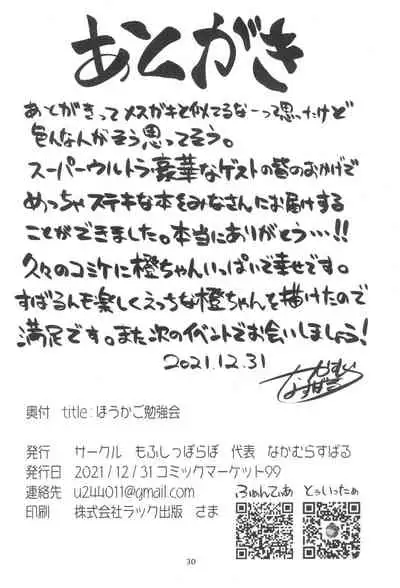 あとがき
あとがきってメスガキと似てるなーって思ったけど
色んな人がそう思ってそう。
スーパーウルトラ豪華なゲストの皆のおかげで
めっちゃステキな本をみなさんにお届けする
ことができました。本当にありがとう…!!
久々のコミケに橙ちゃんいっぱいで幸せです。
すばるんも楽しくえっちな橙ちゃんを描けたので
満足です。また次のイベントでお会いしましょう!
2021.12.31
奥付 title:ほうかご勉強会
発行 サークル もふしっぽらぼ 代表 なかむらすばる
発行日 2021/12/31コミックマーケット99
連絡先 u244011@gmail.com
印刷 株式会社ラック出版 さま
ふぁんてぃあ とぅいったぁ
30